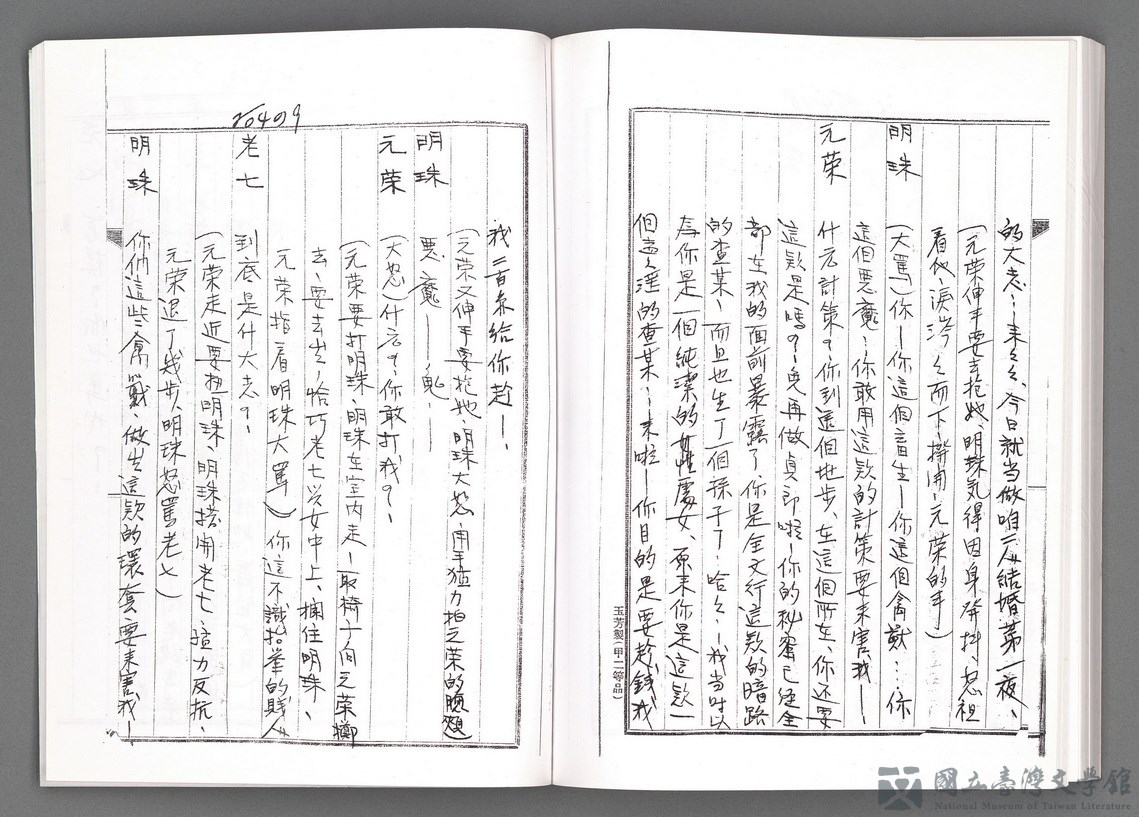 的大志：－来々々、今日就当做咱二人結婚第一夜、
（元荣伸手要去抱她、明珠気得因身発抖、怒祖
看他、淚涔々而下撥開元荣的手）
明珠 （大罵）你－你這個畜生－你這個禽獸…你
這個悪魔：你敢用這款的計策要来害我－
元荣 什么計策？你到這個地步、在這個所在、你还要
這款是嗎？－免再做貞節啦－你的秘蜜已経全
部在我的面前暴露了、你是全文行這款的暗路
的查某、而且也生了一個孫子了…哈々…我当时以
為你是一個純潔的處女、原来你是這款一
個淫的查某…来啦－你目的是要趁錢、我
玉芳製（甲二等品）
我二百糸給你趁－、
（元荣又伸手要抱她、明珠大怒用手猛力拍元荣的腹
明珠 悪魔－－鬼－－
元荣 （大怒）什么？你敢打我？－
（元荣要打明珠、明珠在室内走－取椅子向元荣擲
去、要去出－恰巧老七与女中上、捕住明珠、
元荣指着明珠大罵）你這不識抬挙的賎人
老七 到底是什大志？－
（元荣走近要扭明珠、明珠搭開老七、猛力反抗、
元荣退了幾步、明珠怒罵老七）
明珠 你們這些禽獸、做出這款的環套要来害我－
20409
國立臺灣文學館
National Museum of Taiwan Literature